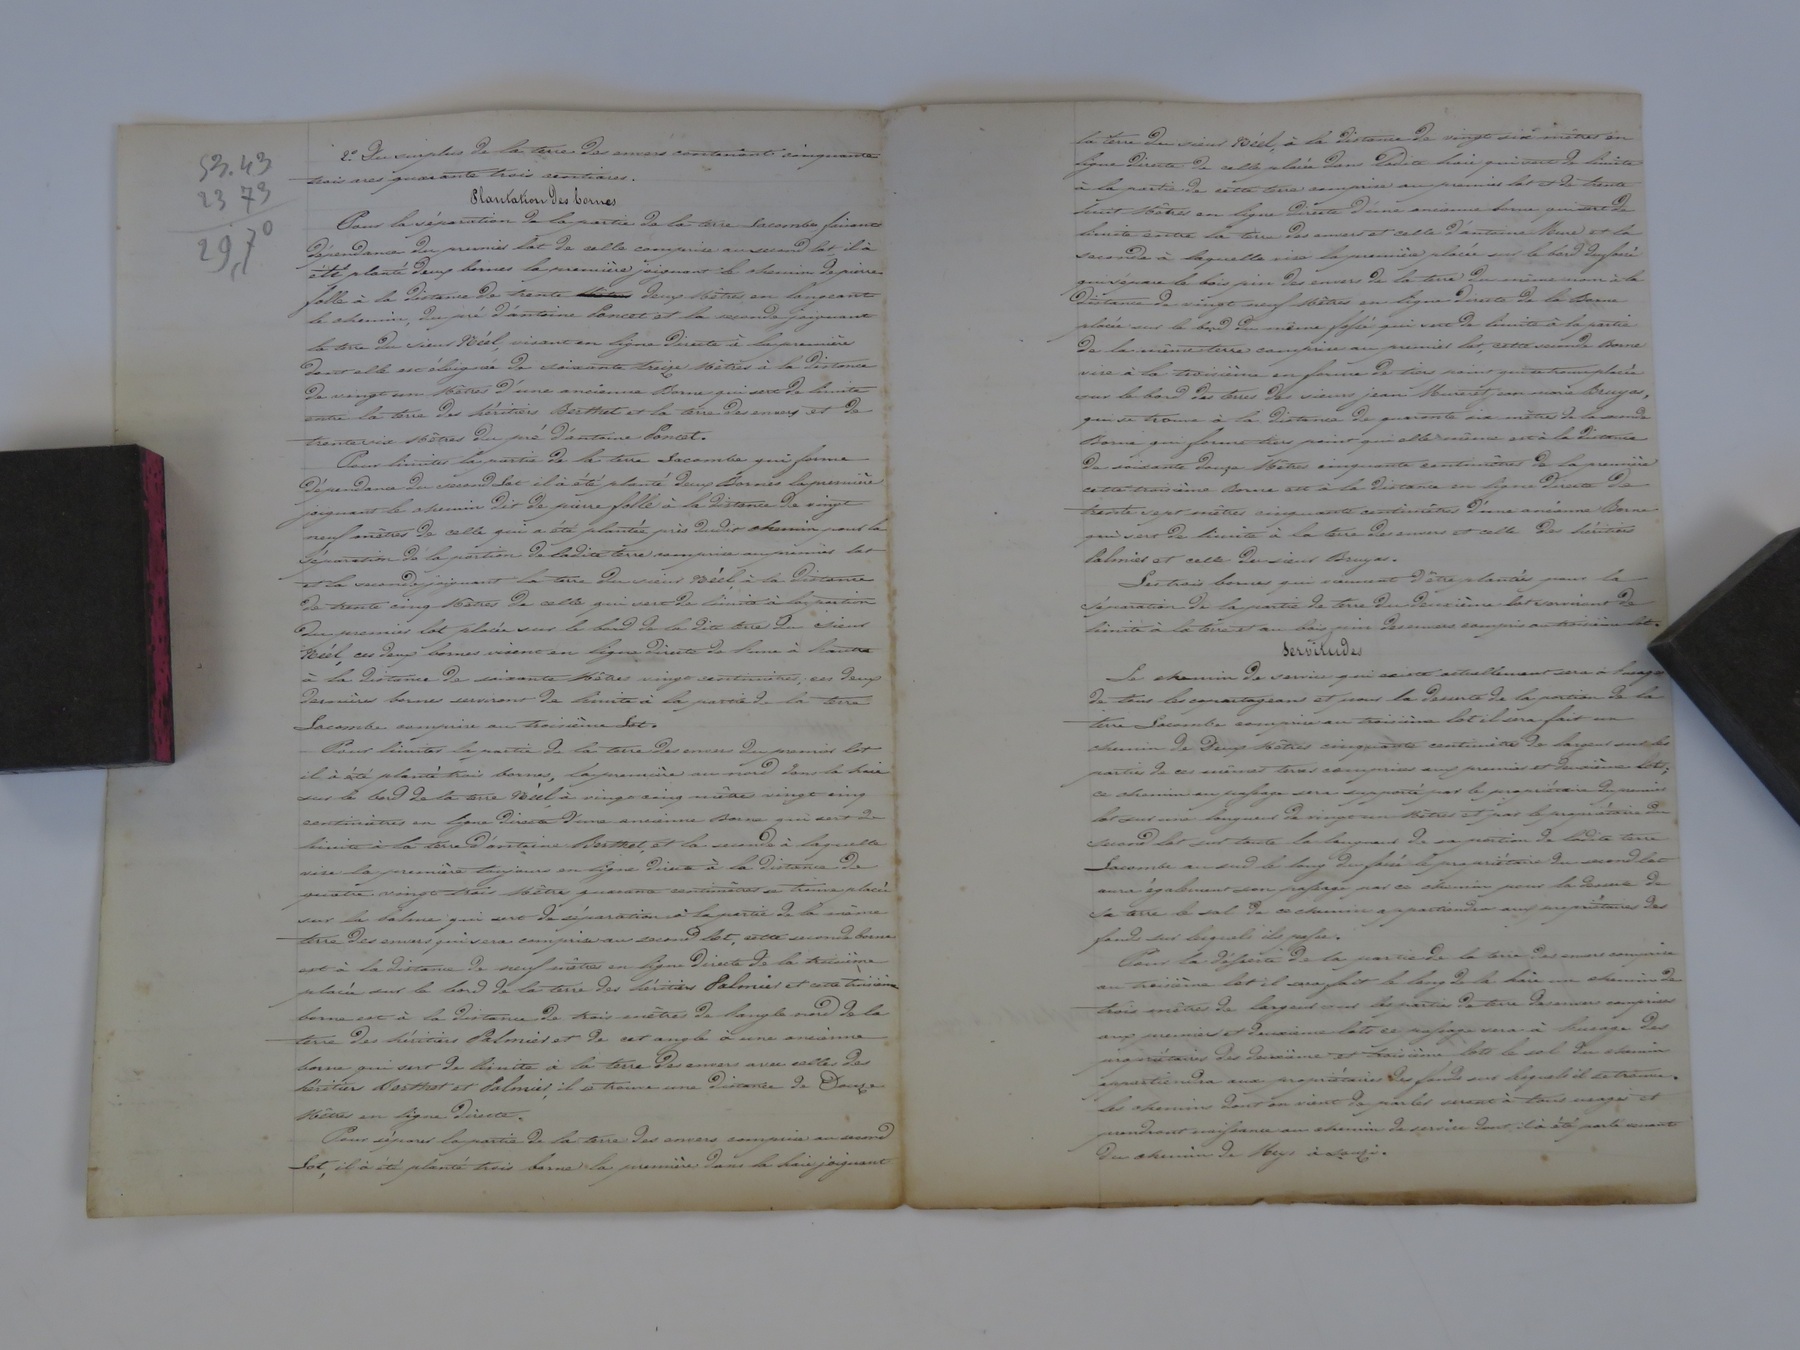 53.43
23 73
29,70
2° Du surplus de la terre des envers contenant cinquante
trois ares quarante trois centiares.
Plantation des bornes
Pour la séparation de la partie de la terre Lacombe faisant
dépendance du premier lot de celle comprise au second lot, il a
été planté deux bornes la première joignant le chemin de pierre
folle à la distance de trente deux Mètres en longeant
le chemin, du pré d'antoine Poncet et la seconde joignant
la terre du sieur Néel, visant en ligne directe à la première
dont elle est éloignée de soixante treize Mètres à la distance
de vingt un Mètres d'une ancienne Borne qui sert de limite
entre la terre des héritiers Berthet et la terre des envers et de
trente six Mètres du pré d'antoine Poncet.
Pour limiter la partie de la terre Lacombe qui forme
dépendance du second Lot il a été planté deux Bornes la première
joignant le chemin dit de pierre folle à la distance de vingt
neuf mètres de celle qui a été plantée près dudit chemin pour la
séparation de la portion de ladite terre comprise au premier lot
et la seconde joignant la terre du sieur Néel, à la distance
de trente cinq Mètres de celle qui sert de limite à la portion
du premier lot placée sur le bord de la dite terre du sieur
Néel, ces deux bornes visent en ligne directe de l'une à l'autre
à la distance de soixante Mètres vingt centimètres; ces deux
dernières bornes serviront de limite à la partie de la terre
Lacombe comprise au troisième Lot.
Pour limiter la partie de la terre des envers du premier lot
il a été planté trois bornes, la première au nord dans la haie
sur le bord de la terre Néel à vingt cinq mètres vingt cinq
centimètres en ligne directe d'une ancienne Borne qui sert de
limite à la terre d'antoine Berthet, et la seconde à laquelle
vise la première toujours en ligne directe à la distance de
quatre vingt trois Mètres quarante centimètres se trouve placée
sur la balme qui sert de séparation à la partie de la même
terre des envers qui sera comprise au second lot, cette seconde borne
est à la distance de neuf mètres en ligne directe de la troisième
placée sur le bord de la terre des héritiers Palmier et cette troisième
borne est à la distance de trois mètres de l'angle nord de la
terre des héritiers Palmier et de cet angle à une ancienne
borne qui sert de limite à la terre des envers avec celle des
héritiers Berthet et Palmier, il se trouve une distance de Douze
Mètres en ligne directe.
Pour séparer la partie de la terre des envers comprise au second
Lot, il a été planté trois borne la première dans la haie joignant
la terre du sieur Néel, à la distance de vingt six mètres en
ligne directe de celle placée dans ladite haie qui sert de limite
à la partie de cette terre comprise au premier lot et de trente
huit Mètres en ligne directe d'une ancienne borne qui sert de
limite entre la terre des envers et celle d'antoine Mure et la
seconde à laquelle vise la première placée sur le bord du fossé
qui sépare le bois pin des envers de la terre du même nom à la
distance de vingt neuf Mètres en ligne directe de la Borne
placée sur le bord du même fossé qui sert de limite à la partie
de la même terre comprise au premier lot, cette seconde Borne
vise à la troisième en forme de tiers point qui se trouve placée
sur le bord des terres des sieurs jean Mure et jean marie Bruyas,
qui se trouve à la distance de quarante six mètres de la seconde
Borne qui forme tiers point qui elle même est à la distance
de soixante douze Mètres cinquante centimètres de la première
cette troisième Borne est à la distance en ligne directe de
trente sept mètres cinquante centimètres d'une ancienne Borne
qui sert de limite à la terre des envers et celle des héritiers
Palmier et celle du sieur Bruyas.
Les trois bornes qui viennent d'être plantés pour la
séparation de la partie de terre du deuxième lot serviront de
limite à la terre et au bois pin des envers compris au troisième lot.
Servitudes
Le chemin de service qui existe actuellement sera à l'usage
de tous les copartageans et pour la desserte de la portion de la
terre Lacombe comprise au troisième lot il sera fait un
chemin de Deux Mètres cinquante centimètre de largeur sur les
parties de ces mêmes terres comprises aux premier et deuxième lots;
ce chemin ou passage sera supporté par le propriétaire du premier
lot sur une longueur de vingt un Mètres et par le propriétaire du
second lot sur toute la longueur de sa portion de ladite terre
Lacombe au sud le long du fossé le propriétaire du second lot
aura également son passage par ce chemin pour la desserte de
sa terre le sol de ce chemin appartiendra aux propriétaires des
fonds sur lesquels ils passe.
Pour la desserte de la partie de la terre des envers comprise
au troisième lot il sera fait le long de la haie un chemin de
trois mètres de largeur sur les parties de terre des envers comprises
aux premier et deuxième lots ce passage sera à l'usage des
propriétaires des deuxième et troisième lots le sol du chemin
appartiendra aux propriétaires des fonds sur lesquels il se trouve.
Les chemins dont on vient de parler seront à tous usages et
prendront naissance au chemin de service dont il a été parlé venant
du chemin de Heys à